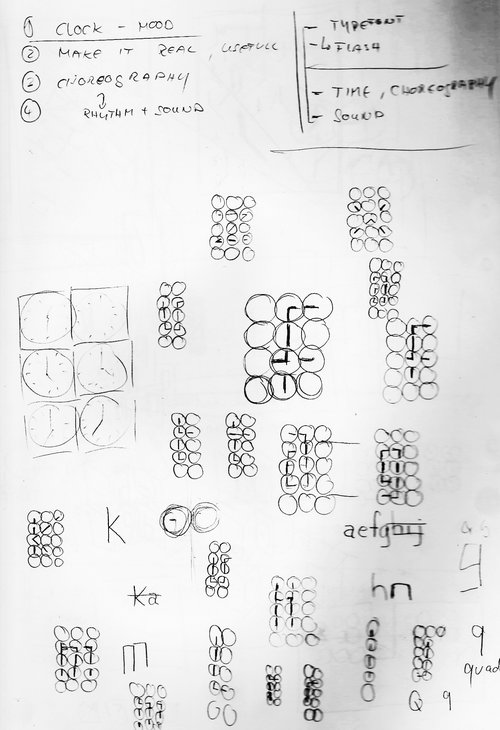 1 CLOCK - MOOD
2 MAKE IT REAL, USEFULL
3 CHOREOGRAPHY
4 RHYTHM + SOUND
- TYPEFONT
- FLASH
- TIME, CHOREOGRAPHY
- SOUND
k
aefghij
g
ka
hn
m
q
quad
Q q